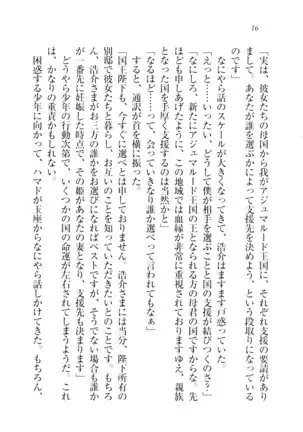 16
「実は、彼女たちの母国から我がアジュマルード王国に、それぞれ支援の要請があり
まして、あなたが誰を選ぶかによって支援先を決めよう、という段取りになっている
のです」
なにやら話のスケールが大きくなってきて、浩介はますます戸惑っていた。
「えっ? いったい、どうして僕が相手を選ぶことと国の支援が結びつくのさ?」
「なにしろ、新たにアジュマルード王国の王となられる方の母君の国ですからな。先
ほども申しあげたように、この地域では血縁が非常に重視されておりますゆえ、親族
となった国を手厚く支援するのは当然かと」
「なるほど……って、会っていきなり誰か選べって言われてもなぁ」
すると、通訳が首を横に振った。
「国王陛下も、今すぐに選べとは申しておりません。浩介さまには当分、陛下所有の
別邸で彼女たちと暮らし、お互いのことを知っていただきたいとのことです。もちろ
ん、浩介さまがお三方の誰かをお選びになればベストですが、そうでない場合も誰か
一番先に妊娠した時点で、その姫があなたの妻となり、支援先も決まります」
どうやら少年の行動次第で、いくつかの国の命運が左右されてしまうようだ。これ
は、かなりの重責である。
困惑する少年に向かって、ハマドが玉座からなにやら話しかけてきた。もちろん、